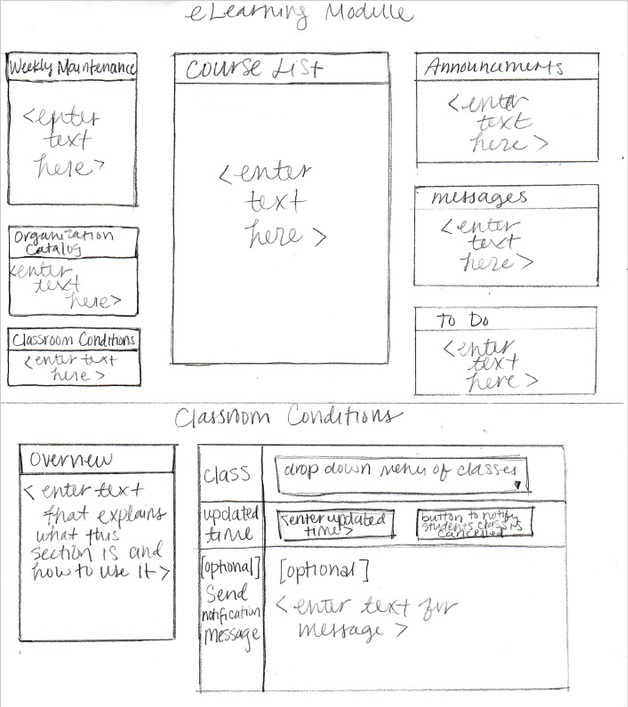 eLearning Module
Weekly Maintenance
<enter
text
here>
Organization
Catalog
<enter
text
here>
Classroom Conditions
<enter text
here >
Course List
<enter
text
here >
Announcements
<enter
text
here >
messages
<enter
text
here>
To Do
<enter
text
here >
Classroom Conditions
Overview
< enter text
that explains
what this
section is and
how to use it>
class
drop down menu of classes
updated
time
<enter updated
time>
button to notify
students class is
cancelled
[optional]
Send
notification
message
[optional]
< enter text for
message >